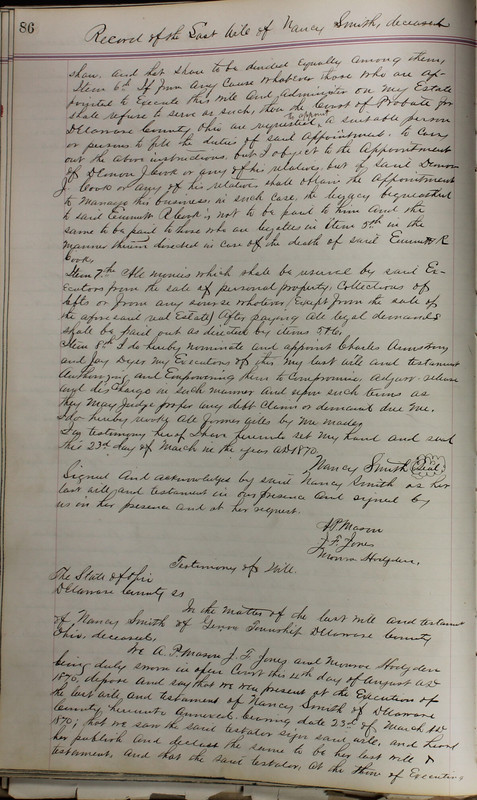 86
Record of the Last Will of Nancy Smith, deceased
share. And her share to be divided equally among them,
Item 6th If from any Cause whatever those who are ap-
pointed to Execute this Will and administer on my Estate
shall refuse to serve as such, then the Court of Probate for
to appoint
Delaware County Ohio are requested, a suitable person
or persons to fill the duties of said appointment. to carry
out the above instructions. but I object to the Appointment
of Demon J Cook or any of his relatives, but if said Demon
J. Cook or any of his relatives shall obtain the appointment
to Manage this business in such case, the legacy bequeathed
to said Emmett R Cook is not to be paid to him And the
same to be paid to those who are legatees in item 5th in the
manner therein directed in case of the death of said Emmett R
Cook.
Item 7th All monies which shall be received by said Ex-
ecutors from the sale of personal property, Collections of
debts or from any source whatever (Except from the sale of
the aforesaid real Estate) After paying all legal demands
shall be paid out as directed by items 5 & 6.
Item 8th I do hereby nominate and appoint Charles Armstrong
and Jay Dyer my Executors of this my last will and testament
Authorizing and Empowering them to Compromise, adjust, release
and discharge in such manner and upon such terms as
they May Judge proper any debt Claim or demand due Me.
I do hereby revoke All former wills by Me made,
In testimony hereof I have hereunto set my hand and seal
this 23d day of March in the year AD 1870.
Nancy Smith (Seal)
Signed and acknowledged by said Nancy Smith as her
last will and testament in our presence and signed by
us in her presence and at her request.
A P Mason
J. F. Jones
Monroe Hodgden.
Testimony of Will.
The State of Ohio
Delaware County ss
In the matter of the last will and testament
of Nancy Smith of Genoa Township Delaware County
Ohio, deceased.
We A. P. Mason J. F Jones and Munroe Hodgden
being duly sworn in open Court this day of August AD
1870, depose and say that we were present at the Execution of
the last will and testament of Nancy Smith of Delaware
County, hereunto Annexed. bearing date 23d of March AD
1870; that we saw the said testator sign said will, and heard
her publish and declare the same to be her last will &
testament, and that the said testator, at the time of Executing